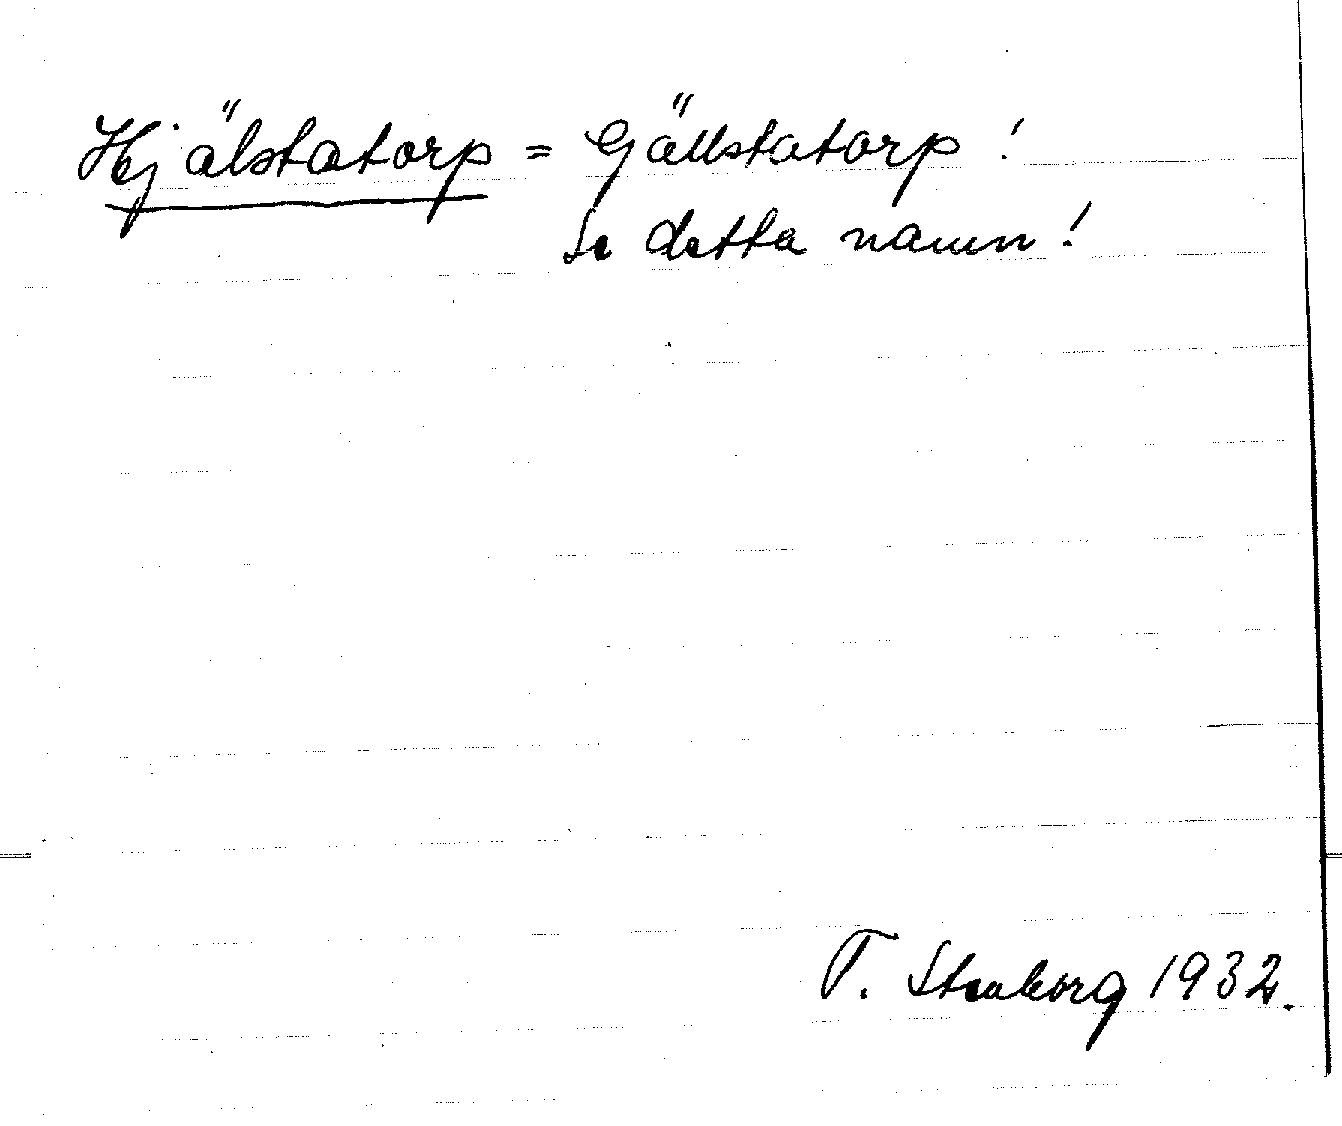 Hjälstatorp = Gjällstatorp!
Se detta namn!
T. Stenborg 1932.